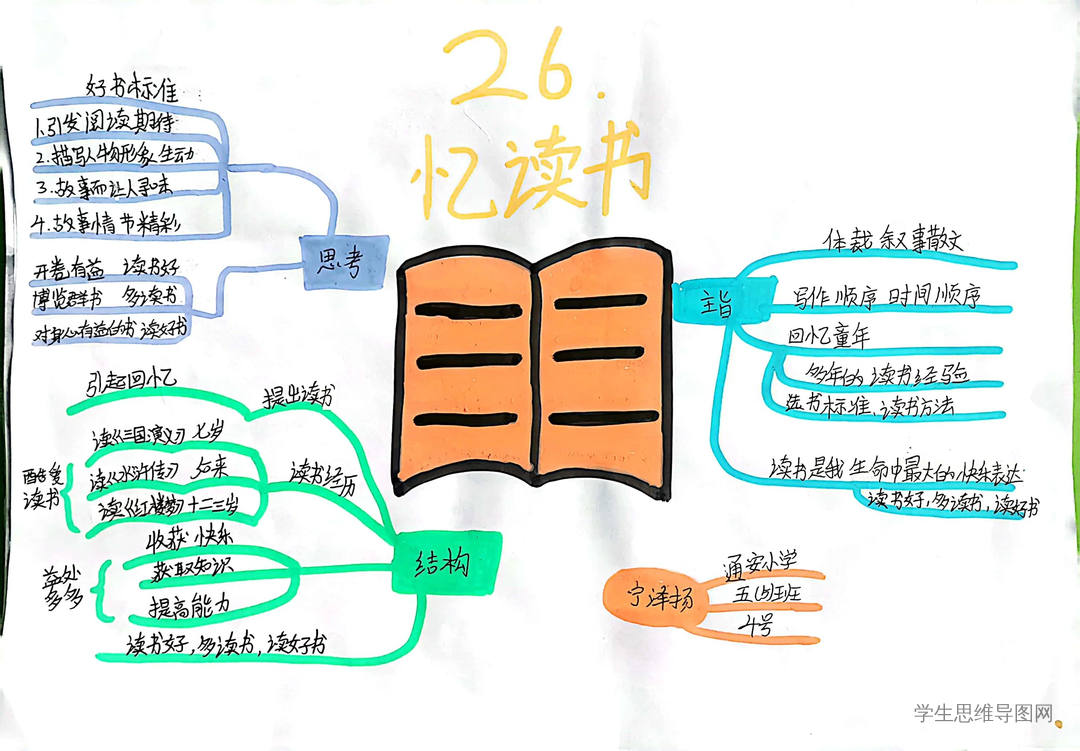 26.
忆读书
思考
好书标准
1.引发阅读期待
2.描写人物形象生动
3.故事而让人寻味
4.故事情节精彩
开卷有益 读书好
博览群书 多读书
对身心有益的书 读好书
主旨
体裁 叙事散文
写作顺序 时间顺序
回忆童年
多年的读书经验
选书标准、读书方法
读书是我生命中最大的快乐表达
读书好,多读书,读好书
结构
提出读书
引起回忆
读书经历
酷爱
读书
读《三国演义》 七岁
读《水浒传》 后来
读《红楼梦》十二三岁
益处
多多
收获 快乐
获取知识
提高能力
读书好,多读书,读好书
宁泽扬
通安小学
4号
学生思维导图网